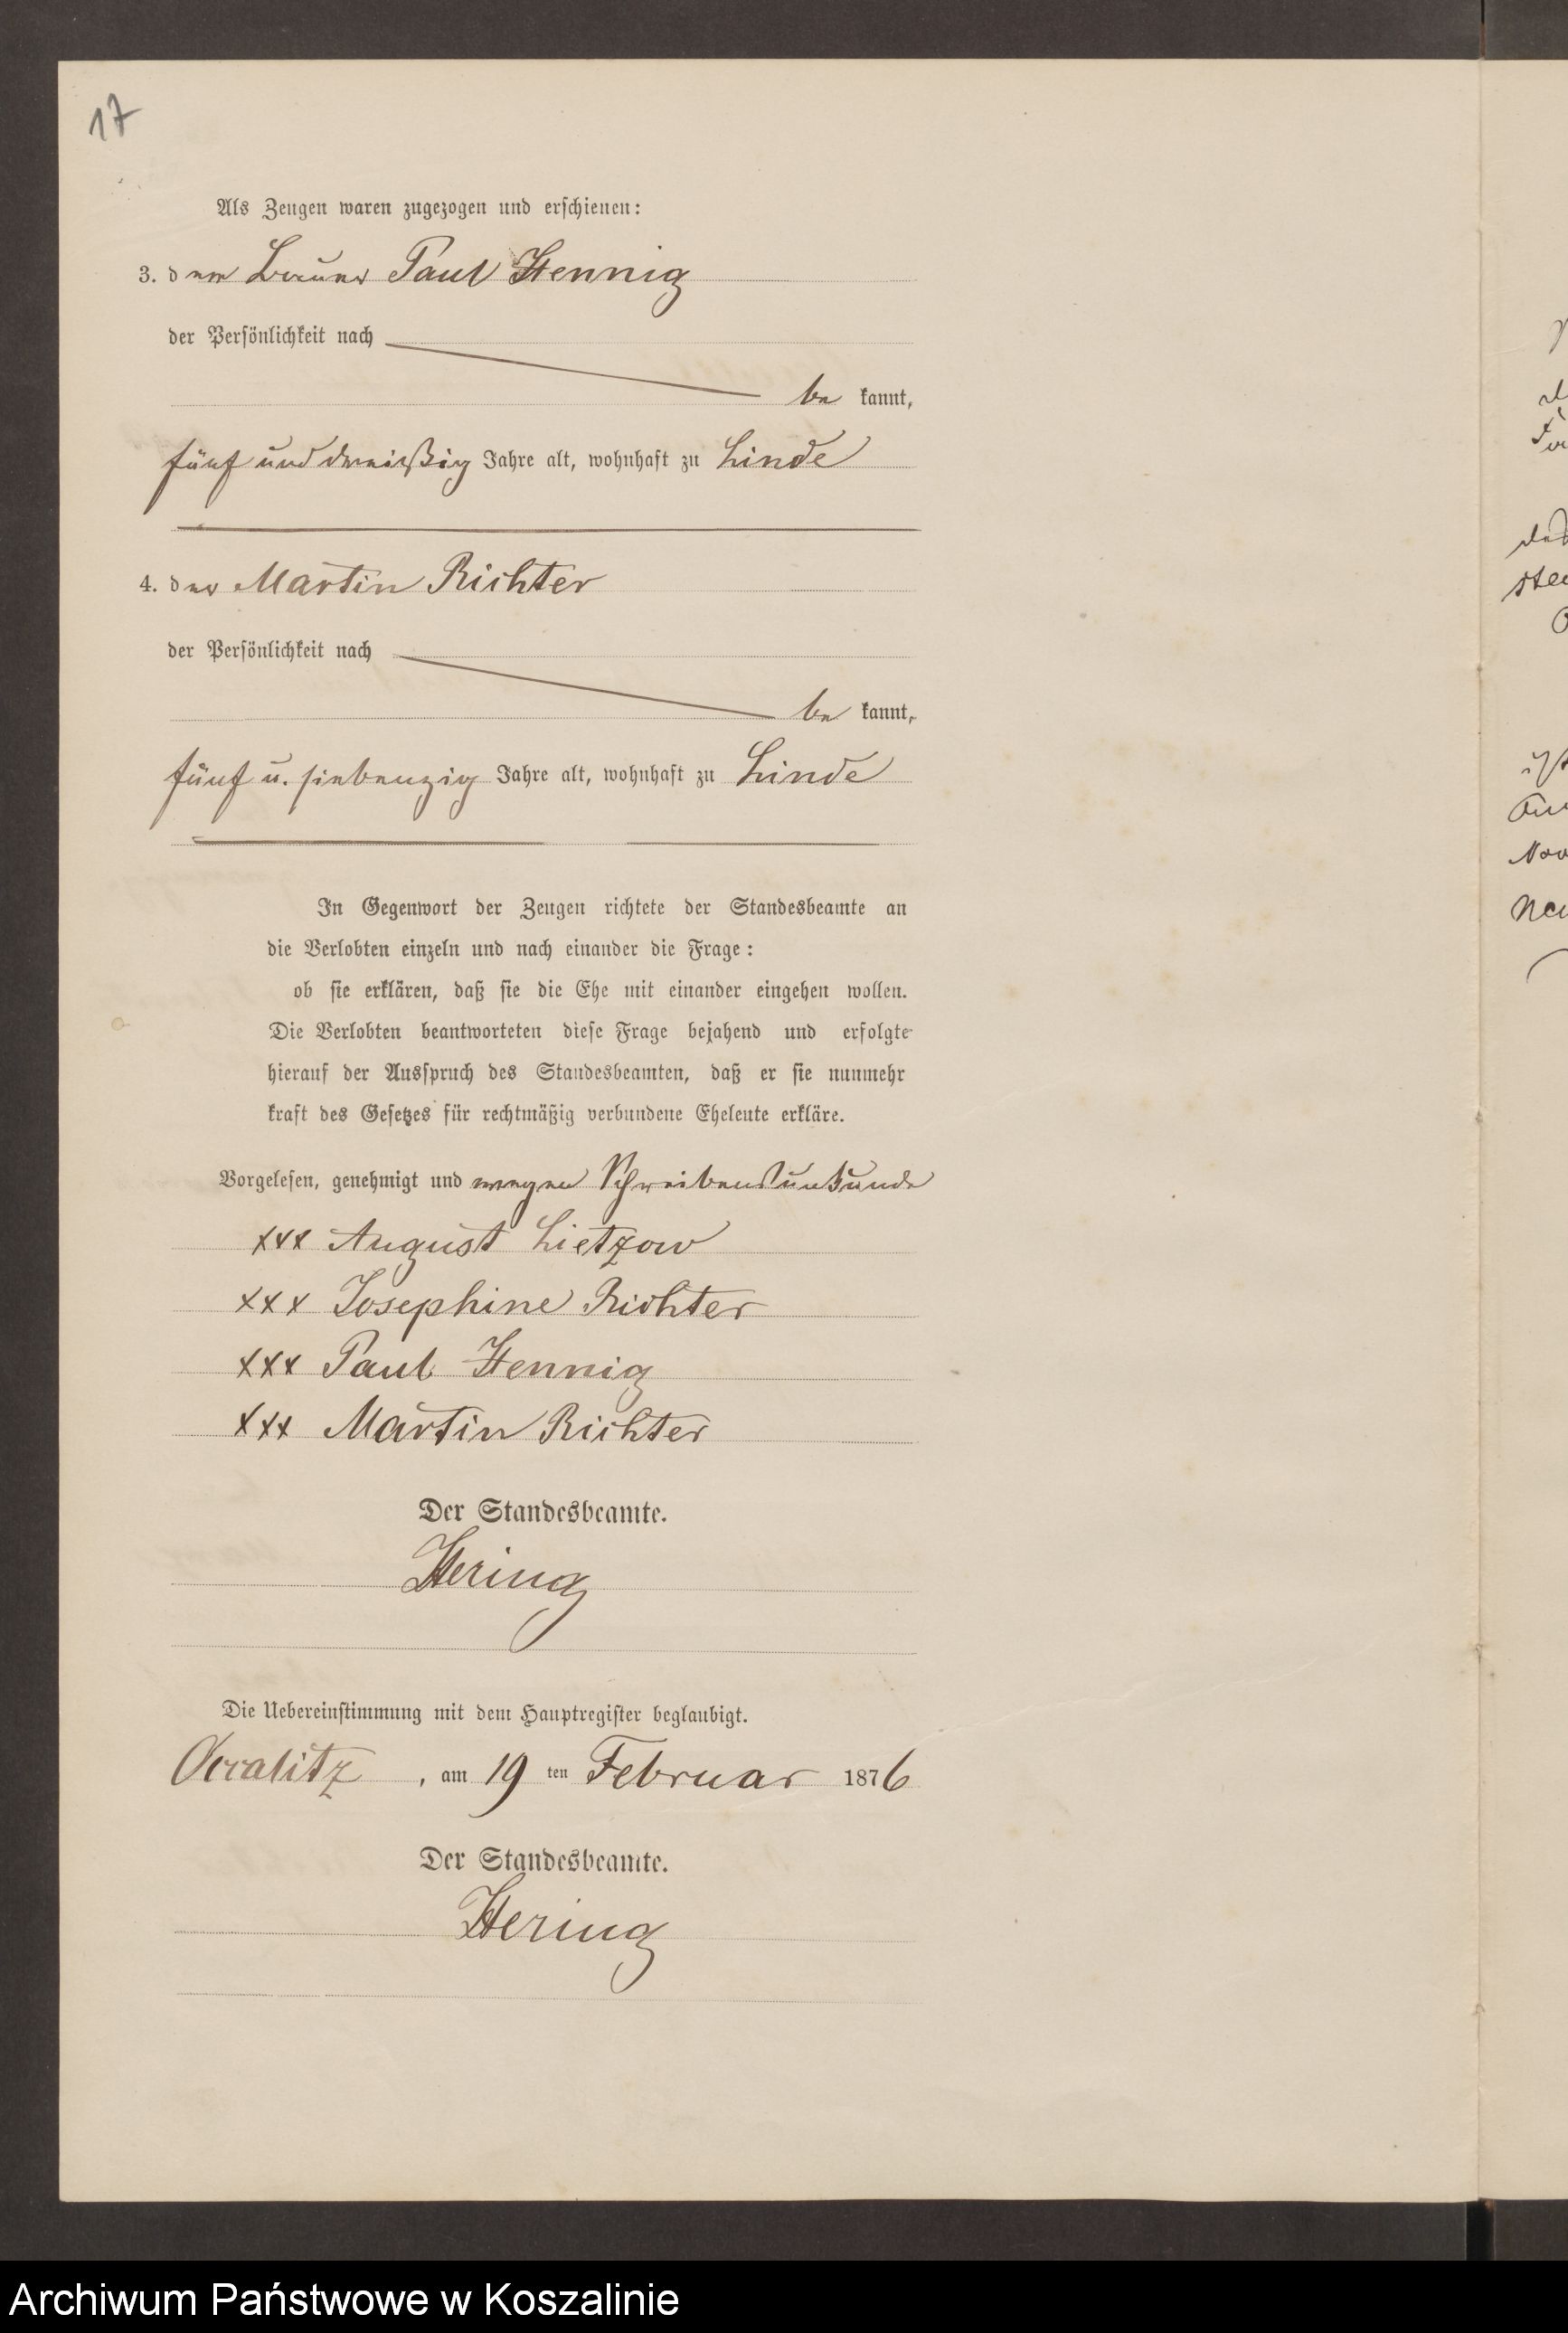 17
Als Zeugen waren zugezogen und erschienen:
3. der Bauer Paul Hennig
der Persönlichkeit nach
be kannt,
fünf und dreißig Jahre alt, wohnhaft zu Linde
4. der Martin Richter
der Persönlichkeit nach
be kannt,
fünf u. siebenzig Jahre alt, wohnhaft zu Linde
In Gegenwort der Zeugen richtete der Standesbeamte an
die Verlobten einzeln und nach einander die Frage:
ob sie erklären, daß sie die Ehe mit einander eingehen wollen.
Die Verlobten beantworteten diese Frage bejahend und erfolgte
hierauf der Ausspruch des Standesbeamten, daß er sie nunmehr
kraft des Gesetzes für rechtmäßig verbundene Eheleute erkläre.
Vorgelesen, genehmigt und wegen Schreibensunkunde
xxx August Lietzow
xxx Josephine Richter
xxx Paul Hennig
xxx Martin Richter
Der Standesbeamte.
Hering
Die Uebereinstimmung mit dem Hauptregister beglaubigt.
, am 19 ten Februar 1876
Der Standesbeamte.
Hering
Archiwum Państwowe w Koszalinie